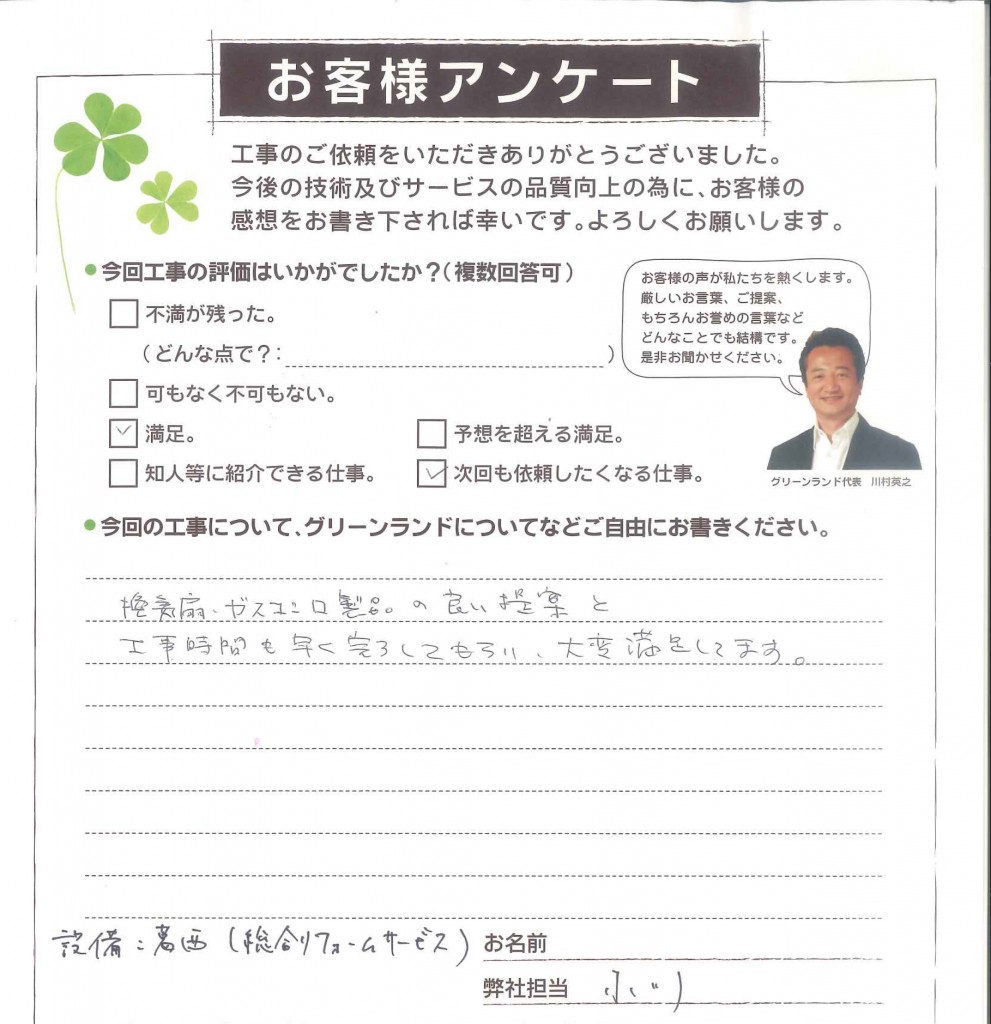 お客様アンケート
工事のご依頼をいただきありがとうございました。
今後の技術及びサービスの品質向上の為に、お客様の
感想をお書き下されば幸いです。よろしくお願いします。
今回工事の評価はいかがでしたか？（複数回答可）
不満が残った。
（どんな点で？： ）
可もなく不可もない。
満足。
予想を超える満足。
知人等に紹介できる仕事。
次回も依頼したくなる仕事。
お客様の声が私たちを熱くします。
厳しいお言葉、ご提案、
もちろんお誉めの言葉など
どんなことでも結構です。
是非お聞かせください。
グリーンランド代表 川村英之
今回の工事について、グリーンランドについてなどご自由にお書きください。
換気扇、ガスコンロ製品の良い提案と
工事時間も早く完了してもらい、大変満足してます。
設備：葛西（総合リフォームサービス）
お名前
弊社担当